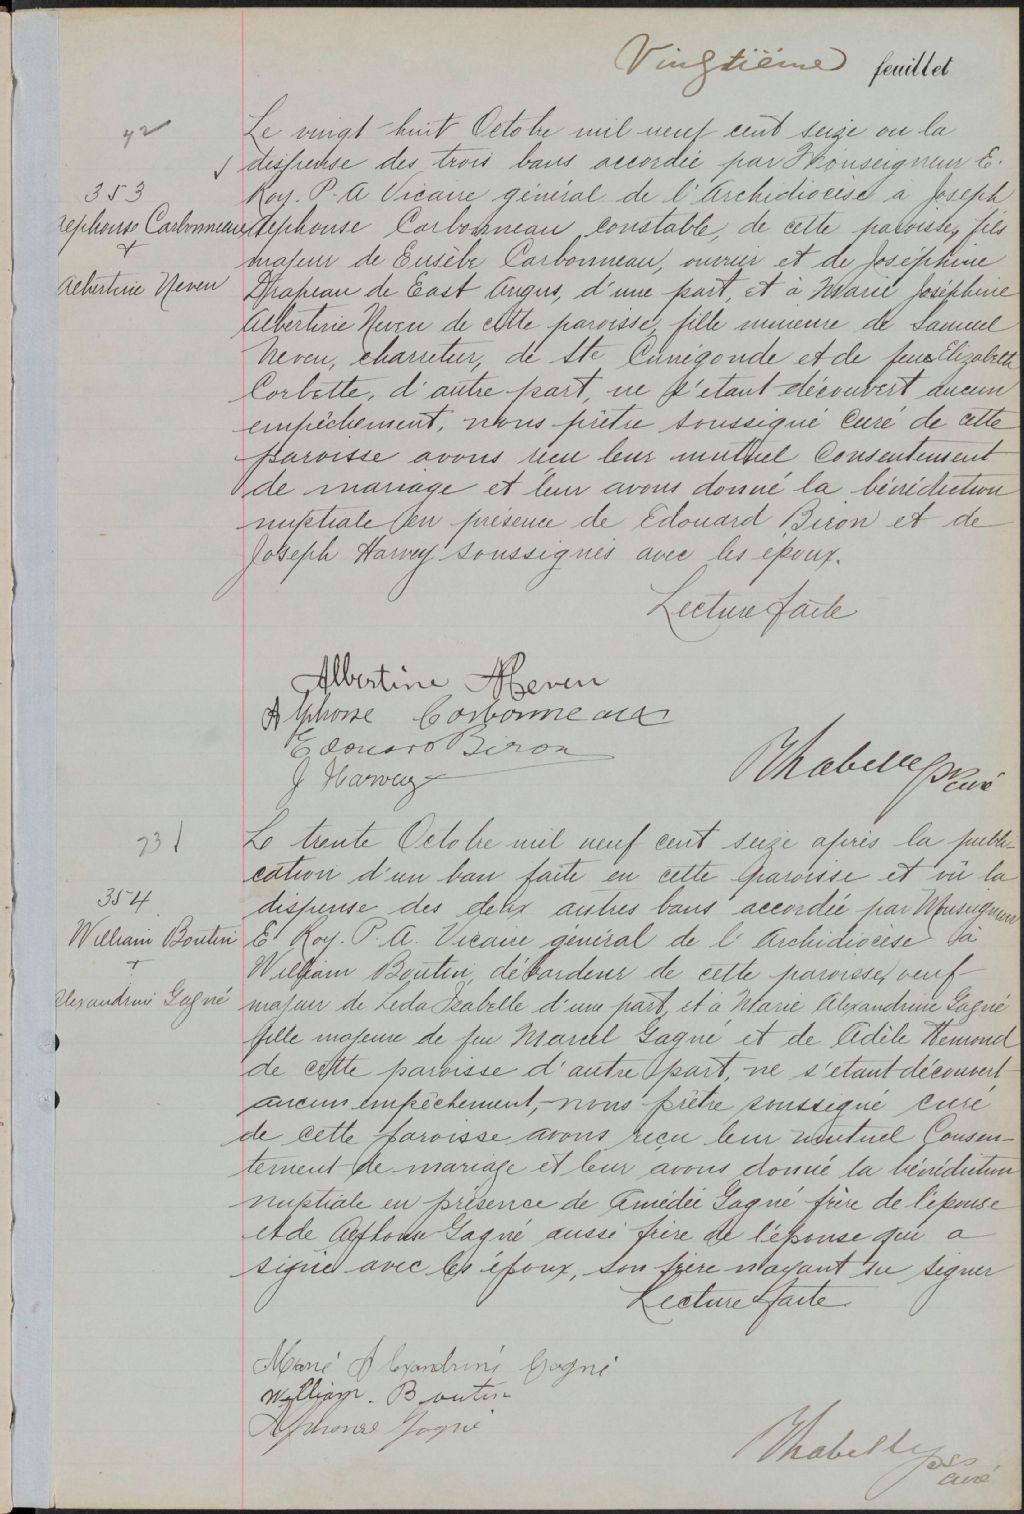 Vingtième feuillet
42
353
Alphonse Carbonneau
+
Albertine Neveu
Le vingt-huit Octobre mil neuf cent seize vu la
dispense des trois bans accordée par Monseigneur E.
Roy. P. A Vicaire général de l'Archidiocèse à Joseph
Alphonse Carbonneau constable, de cette paroisse, fils
majeur de Eusèbe Carbonneau, ouvrier et de Joséphine
Drapeau de East Angus, d'une part, et à Marie Joséphine
Albertine Neveu de cette paroisse, fille mineure de Samuel
Neveu, charretier, de Ste Cunégonde et de feue Elizabeth
Corbette, d'autre part, ne s'étant découvert aucun
empêchement, nous prêtre soussigné Curé de cette
paroisse avons reçu leur mutuel Consentement
de mariage et leur avons donné la bénédiction
nuptiale en présence de Edouard Biron et de
Joseph Harvey soussignés avec les époux.
Lecture faite
Albertine Neveu
Alphonse Carbonneau
Edouard Biron
J Harvey
curé
73
354
William Boutin
+
Alexandrine Gagné
Le trente Octobre mil neuf cent seize après la publi-
cation d'un ban faite en cette paroisse et vû la
dispense des deux autres bans accordée par Monseigneur
E Roy. P. A. Vicaire général de l'Archidiocèse à
William Boutin, débardeur de cette paroisse, veuf
majeur de Leda Izabelle d'une part, et à Marie Alexandrine Gagné
fille majeure de feu Marcel Gagné et de Adèle Hemond
de cette paroisse d'autre part, ne s'étant découvert
aucun empêchement, nous prêtre soussigné curé
de cette paroisse avons reçu leur mutuel Consen-
tement de mariage et leur avons donné la bénédiction
nuptiale en présence de Amédée Gagné frère de l'épouse
et de Alphonse Gagné aussi frère de l'épouse qui a
signé avec les époux, son frère n'ayant su signer
Lecture faite.
Marie Alexandrine Gagné
William Boutin
Alphonse Gagné
curé